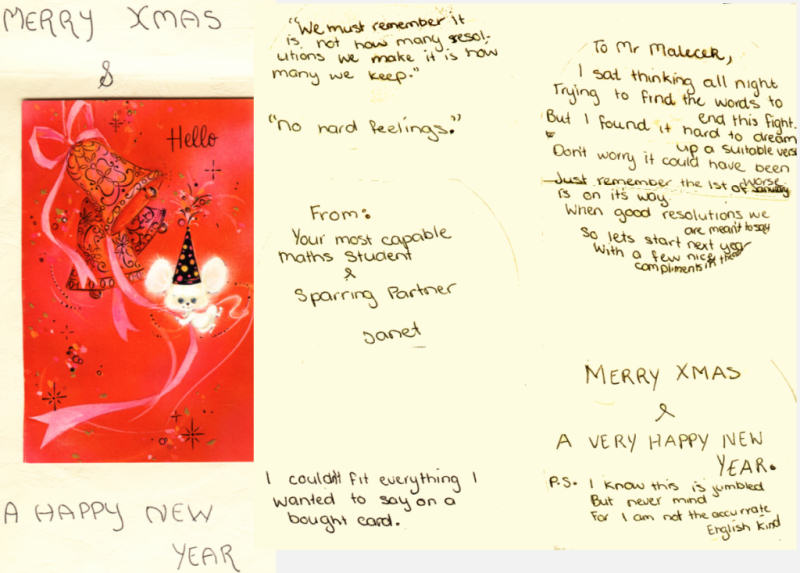 MERRY XMAS
&
Hello
A HAPPY NEW
YEAR
"We must remember it
is not how many resol-
utions we make it is how
many we keep."
"No hard feelings."
From:
Your most capable
maths student
&
Sparring Partner
Janet
I couldn't fit everything I
wanted to say on a
bought card.
To Mr Malecek,
I sat thinking all night
Trying to find the words to
end this fight.
But I found it hard to dream
up a suitable verse
Don't worry it could have been
worse
Just remember the 1st of January
is on it's way
When good resolutions we
are meant to say
So lets start next year
With a few nice
compliments in there
MERRY XMAS
&
A VERY HAPPY NEW
YEAR.
P.S. I know this is jumbled
But never mind
For I am not the accurrate
English kind